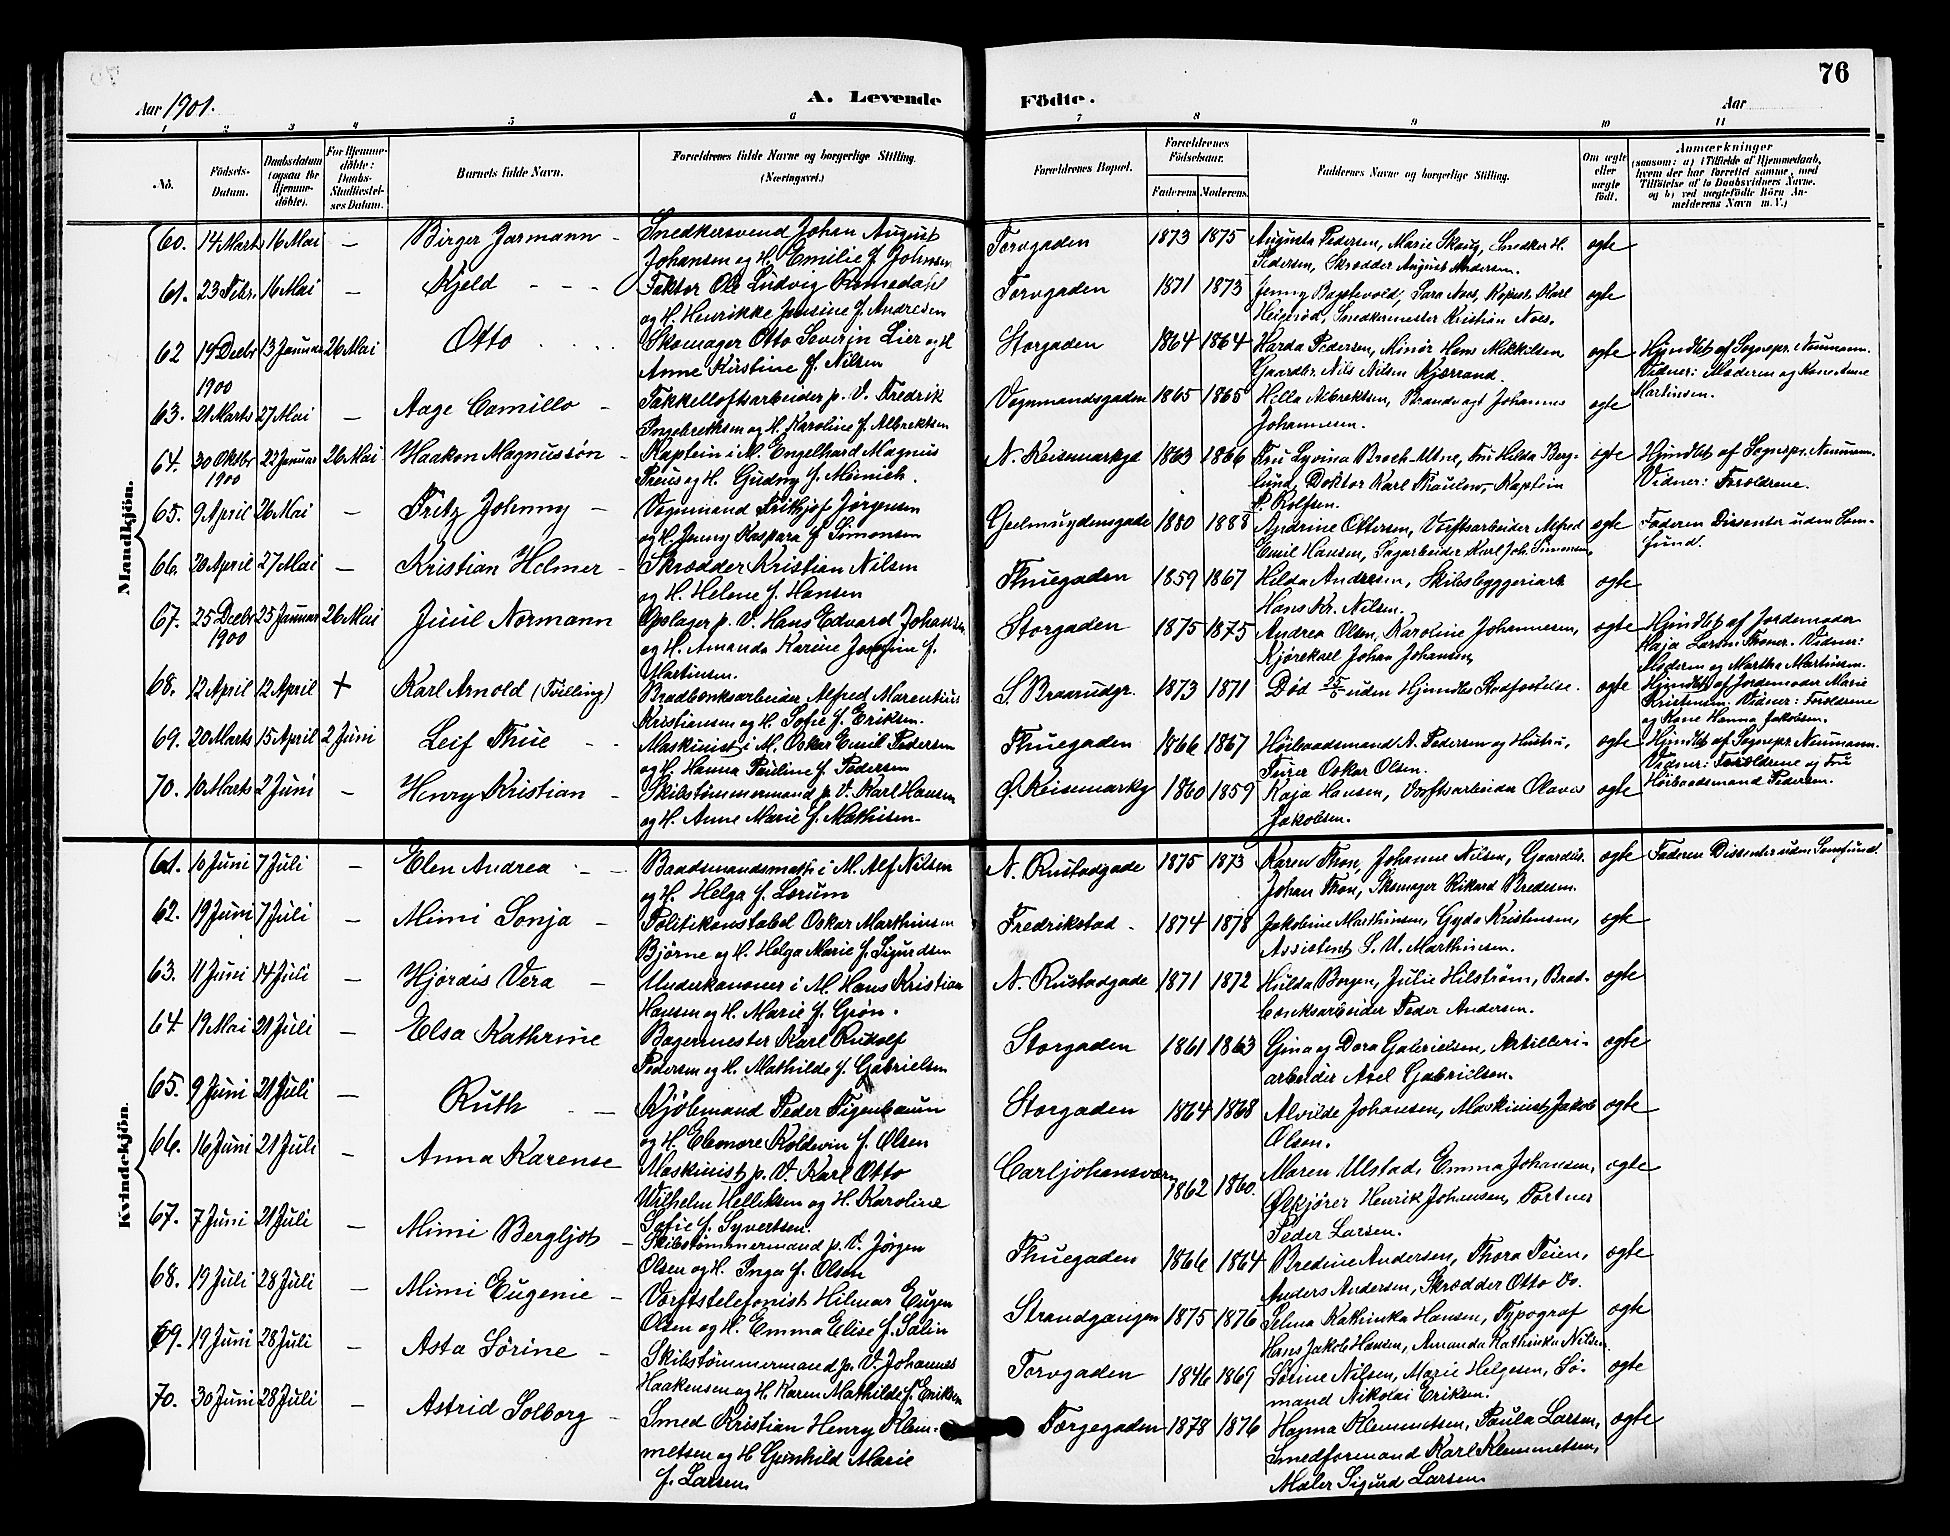 76
Aar 1901.
A. Levende
Födte.
Aar
1 2 3 4 5 6 7 8 9 10 11
No.
Födsels-Datum.
Daabsdatum (ogsaa for Hjemmedöbte).
For Hjemmedöbte: Daabs-Stadfæstelses Datum.
Barnets fulde Navn.
Forældrenes fulde Navne og borgerlige Stilling. (Næringsvei.)
Forældrenes Bopæl.
Forældrenes Födselsaar.
Faderens. Moderens.
Faddernes Navne og borgerlige Stilling.
Om ægte eller uægte födt.
Anmærkninger
(saasom: a) i Tilfælde af Hjemmedaab, hvem der har forrettet samme, med Tilföielse af to Daabsvidners Navne, og b) ved uægtefödte Börn Anmelderens Navn m. V.)
Mandkjön.
60. 14 Marts 16 Mai — Birger Jarmann — Snedkersvend Johan August
Johansen og H. Emilie f. Johnsen Torvgaden 1873 1875 Augusta Pedersen, Marie Skaug, Snedker H.
Pedersen, Skrædder August Andersen. ægte
61. 23 Febr. 16 Mai — Kjeld — Faktor Ole Ludvig Romedahl
og H. Henrikke Jensine f. Andresen Torvgaden 1871 1873 Jenny Bapstevold, Sara Noes, Kopist Karl
Heigerød, Snedkermester Kristian Noes. ægte
62 19 Decbr 1900 13 Januar 26 Mai Otto Skomager Otto Severin Lier og H
Anne Kirstine f. Nilsen Storgaden 1864 1864 Harda Pedersen, Minør Hans Mikkelsen
Gaardbr. Nils Nilsen Kjærrand. ægte Hjmdbt af Sognepr. Neumann.
Vidner: Moderen og Kone Anne
Martinsen.
63. 21 Marts 27 Mai — Aage Camillo — Takkelloftsarbeider p. V. Fredrik
Ingebretsen og H. Karoline f. Albrektsen Vognmandsgaden 1865 1865 Hella Albrektsen, Brandvagt Johannes
Johannesen. ægte
64. 30 Oktbr 1900 22 Januar 26 Mai Haakon Magnussøn — Kaptein i M. Engelhard Magnus
Preus og H. Gudny f. Meinich. N. Keisemarkge 1863 1866 Fru Lyvina Broch-Utne, Fru Hilda Berg-
lund, Doktor Karl Thaulow, Kaptein
P. Rolfsen. ægte Hjmdbt af Sognepr. Neumann.
Vidner: Forældrene.
65. 9 April 26 Mai — Fritz Johnny — Vognmand Frithjof Jørgensen
og H. Jenny Kaspara f. Simonsen Geelmuydensgade 1880 1888 Andrine Ottersen, Værftsarbeider Alfred
Emil Hansen, Sagarbeider Karl Joh. Simonsen, ægte Faderen Dissenter uden Sam-
fund.
66. 20 April 27 Mai — Kristian Holmer — Skrædder Kristian Nilsen
og H. Helene f. Hansen Thuegaden 1859 1867 Hilda Andersen, Skibsbyggeriarb
Hans Kr. Nilsen. ægte
67. 25 Decbr 1900 25 Januar 26 Mai Juul Normann Opslager p. V. Hans Edvard Johansen
og H. Amanda Karine Josefine f.
Martinsen. Storgaden 1875 1875 Andrea Olsen, Karoline Johannesen,
Kjørekarl Johan Johansen, ægte Hjmdbt af Jordemoder
Kaja Larsen Troner. Vidner:
Moderen og Marthe Martinsen.
68. 12 April 12 April + Karl Arnold (Tvilling) Bradbænksarbeider Alfred Marentius
Kristiansen og H. Sofie f. Eriksen. S. Braarudgr. 1873 1871 Død 25/5 uden Hjmdbs Stadfæstelse. ægte Hjmdbt af Jordemoder Marie
Kristensen. Vidner: Forældrene
og Kone Hanna Jakobsen.
69. 20 Marts 15 April 2 Juni Leif Thue — Maskinist i M. Oskar Emil Pedersen
og H. Hanna Pauline f. Pedersen Thuegaden 1866 1867 Høibaadsmand A. Pedersen og Hustru,
Feier Oskar Olsen. ægte Hjmdbt af Sognepr. Neumann.
Vidner: Forældrene og Fru
Høibaadsmand Pedersen.
70. 10 Marts 2 Juni — Henry Kristian — Skibstømmermand p. V. Karl Hansen
og H. Anne Marie f. Mathisen. Ø. Keisemarkg 1860 1859 Kaja Hansen, Værftsarbeider Olaves
Jakobsen. ægte
Kvindekjön.
61. 10 Juni 7 Juli — Elen Andrea — Baadsmandsmath i M. Alf Nilsen
og H. Helga f. Lorum N. Rustadgade 1875 1873 Karen Thon, Johanne Nilsen, Gaardbr.
Johan Thon, Skomager Rikard Bredesen. ægte Faderen Dissenter uden Samfund.
62. 19 Juni 7 Juli — Mimi Sonja — Politikonstabel Oskar Marthinsen
Bjørne og H. Helga Marie f. Sigurdsen Fredrikstad 1874 1878 Jakobine Marthinsen, Gyda Kristensen,
Assistent S. V. Marthinsen. ægte
63. 11 Juni 14 Juli — Hjørdis Vera — Underkanoner i M. Hans Kristian
Hansen og H. Marie f. Grøn. N. Rustadgade 1871 1872 Hulda Borgen, Julie Hilstrøm, Brad-
bænksarbeider Peder Andersen. ægte
64 19 Mai 21 Juli — Elsa Kathrine Bagermester Karl Rudolf
Pedersen og H. Mathilde f. Gabrielsen Storgaden 1861 1863 Gina og Dora Gabrielsen, Artilleri-
arbeider Axel Gabrielsen. ægte
65. 9 Juni 21 Juli — Ruth — Kjøbmand Peder Figenbaum
og H. Eleonore Koldevin f. Olsen Storgaden 1864 1868 Alvilde Johansen, Maskinist Jakob
Olsen. ægte
66. 16 Juni 21 Juli — Anna Karense Maskinist p. V. Karl Otto
Wilhelm Helliksen og H. Karoline
Sofie f. Syvertsen. Carljohansværn 1862 1860. Maren Ulstad, Emma Johansen,
Ølkjører Henrik Johansen, Portner
Peder Larsen. ægte
67. 7 Juni 21 Juli — Mimi Bergljot — Skibstømmermand p. V. Jørgen
Olsen og H. Inga f. Olsen Thuegaden 1866 1864 Bredine Andersen, Thora Feien,
Anders Andersen, Skrædder Otto Do. ægte
68. 19 Juli 28 Juli — Mimi Eugenie — Værftstelefonist Hilmar Eugen
Olsen og H. Emma Elise f. Salin Strandgangen 1875 1876 Selma Kathinka Hansen, Typograf
Hans Jakob Hansen, Amanda Kathinka Nilsen ægte
69. 19 Juni 28 Juli — Asta Sørine — Skibstømmermand p. V. Johannes
Haakensen og H. Karen Mathilde f. Eriksen Torvgaden 1846 1869 Sørine Nilsen, Marie Helgesen, Sø-
mand Nikolai Eriksen. ægte
70. 30 Juni 28 Juli — Astrid Solborg — Smed Kristian Henry Klem-
metsen og H Gunhild Marie
f. Larsen Færgegaden 1878 1876 Hanna Klemmetsen, Paula Larsen,
Smedformand Karl Klemmetsen,
Maler Sigurd Larsen. ægte